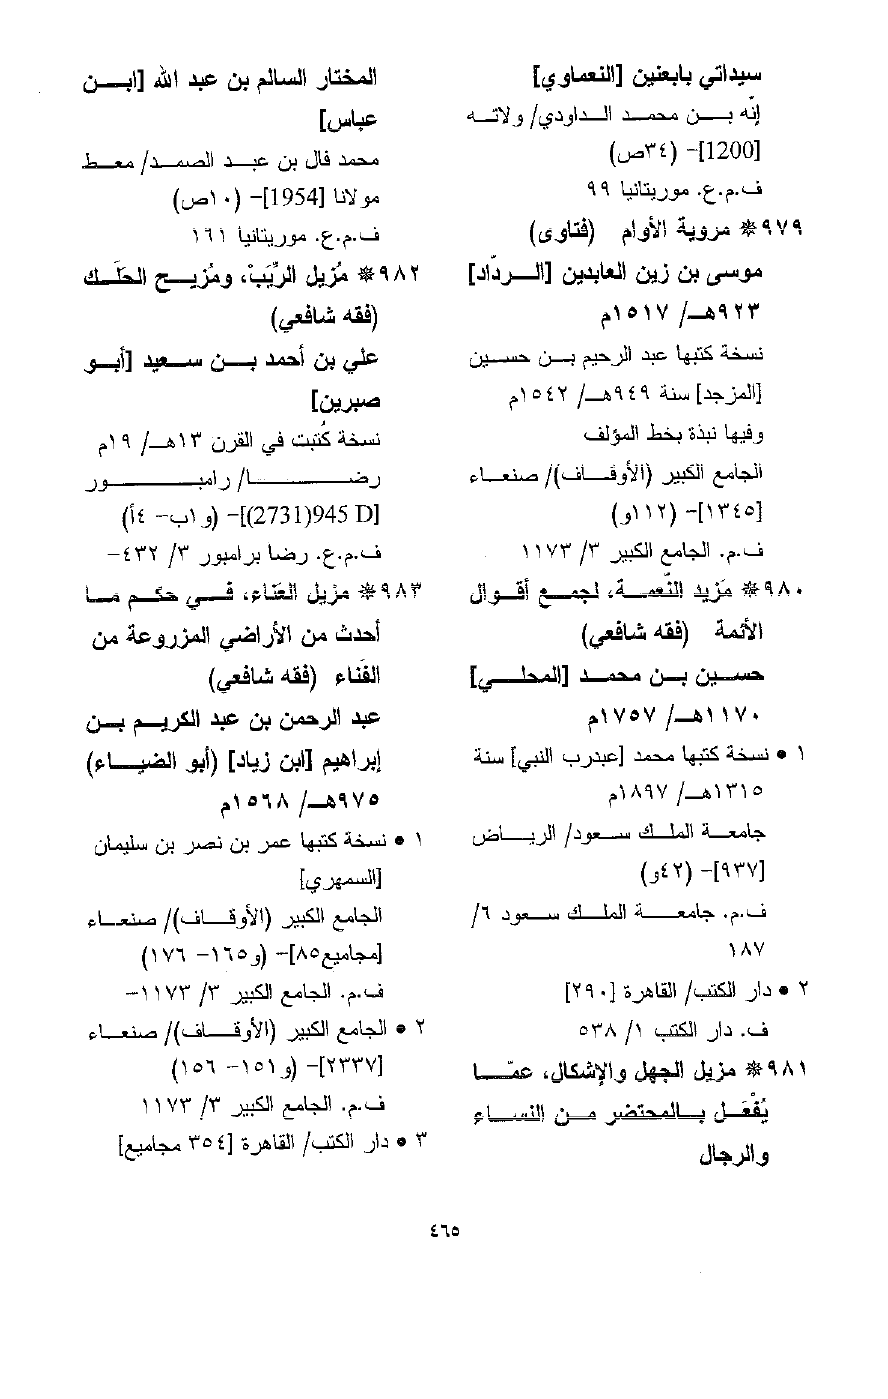 سيداتي بابعنين [النعماوي]
إنّه بن محمد الداودي/ ولاته
[1200]- (٣٤ص)
ف.م.ع. موريتانيا ٩٩
٩٧٩* مروية الأوام (فتاوى)
موسى بن زين العابدين [الردّاد]
٩٢٣هـ/ ١٥١٧م
نسخة كتبها عبد الرحيم بن حسين
[المزجد] سنة ٩٤٩هـ/ ١٥٤٢م
وفيها نبذة بخط المؤلف
الجامع الكبير (الأوقاف)/ صنعاء
[١٣٤٥]- (١١٢و)
ف.م. الجامع الكبير ٣/ ١١٧٣
٩٨٠* مَزيد النّعمة، لجمع أقوال
الأئمة (فقه شافعي)
حسين بن محمد [المحلي]
١١٧٠هـ/ ١٧٥٧م
١ • نسخة كتبها محمد [عبدرب النبي] سنة
١٣١٥هـ/ ١٨٩٧م
جامعة الملك سعود/ الرياض
[٩٣٧]- (٤٢و)
ف.م. جامعة الملك سعود ٦/
١٨٧
٢ • دار الكتب/ القاهرة [٢٩٠]
ف. دار الكتب ١/ ٥٣٨
٩٨١* مزيل الجهل والإشكال، عمّا
يُفْعَل بالمحتضر من النساء
والرجال
المختار السالم بن عبد الله [ابن
عباس]
محمد فال بن عبد الصمد/ معط
مولانا [1954]- (١٠ص)
ف.م.ع. موريتانيا ١٦١
٩٨٢* مُزيل الرِّيَبْ، ومُزيح الحَلَك
(فقه شافعي)
علي بن أحمد بن سعيد [أبو
صبرين]
نسخة كُتبت في القرن ١٣هـ/ ١٩م
رضا/ رامبور
[945 D(2731)]- (و١ب- ٤أ)
ف.م.ع. رضا برامبور ٣/ ٤٣٢-
٩٨٣* مزيل العَناء، في حكم ما
أحدث من الأراضي المزروعة من
الفَناء (فقه شافعي)
عبد الرحمن بن عبد الكريم بن
إبراهيم [ابن زياد] (أبو الضياء)
٩٧٥هـ/ ١٥٦٨م
١ • نسخة كتبها عمر بن نصر بن سليمان
[السمهري]
الجامع الكبير (الأوقاف)/ صنعاء
[مجاميع٨٥]- (و١٦٥- ١٧٦)
ف.م. الجامع الكبير ٣/ ١١٧٣-
٢ • الجامع الكبير (الأوقاف)/ صنعاء
[٢٣٣٧]- (و١٥١- ١٥٦)
ف.م. الجامع الكبير ٣/ ١١٧٣
٣ • دار الكتب/ القاهرة [٣٥٤ مجاميع]
٤٦٥